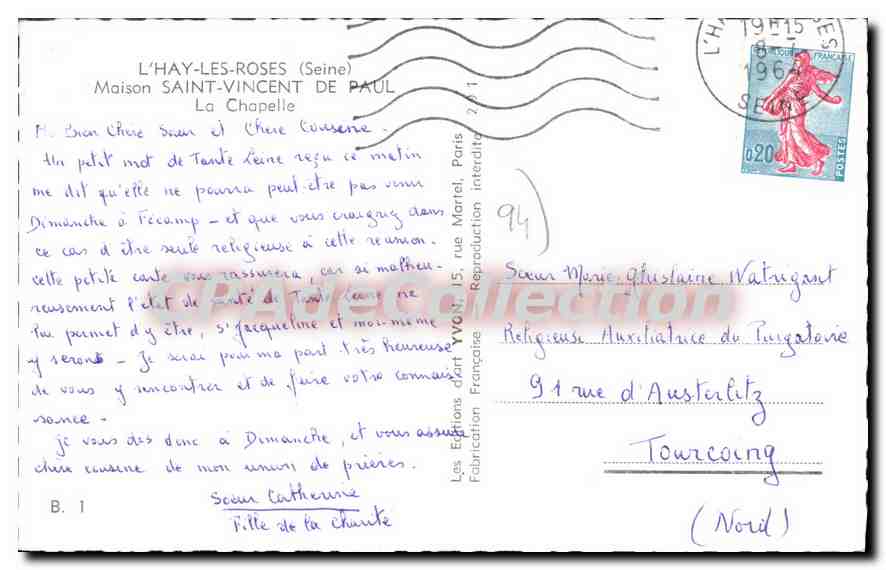 L'HAY-LES-ROSES (Seine)
Maison SAINT-VINCENT DE PAUL
La Chapelle
Ma Bien Chère Sœur et Chère Cousine -
Un petit mot de Tante Leine reçu ce matin
me dit qu'elle ne pourra peut-être pas venir
Dimanche à Fécamp - et que vous craignez dans
ce cas d'être seule religieuse à cette réunion.
cette petite carte vous rassurera, car si malheu-
reusement l'état de santé de Tante Leine ne
lui permet d'y être, sr Jacqueline et moi-même
y serons - Je serai pour ma part très heureuse
de vous y rencontrer et de faire votre connais
sance -
Je vous dis donc à Dimanche, et vous assure
chère cousine de mon union de prières.
Sœur Catherine
Fille de la Charité
B. 1
Les Editions d'art YVON, 15, rue Martel, Paris
Fabrication Française - Reproduction interdite
19H15
8-
1964
SEINE
FRANÇAISE
0,20
POSTES
94)
Sœur Marie Ghislaine Watrigant
Religieuse Auxiliatrice du Purgatoire
91 rue d'Austerlitz
Tourcoing
(Nord)
CPADeCollection.com